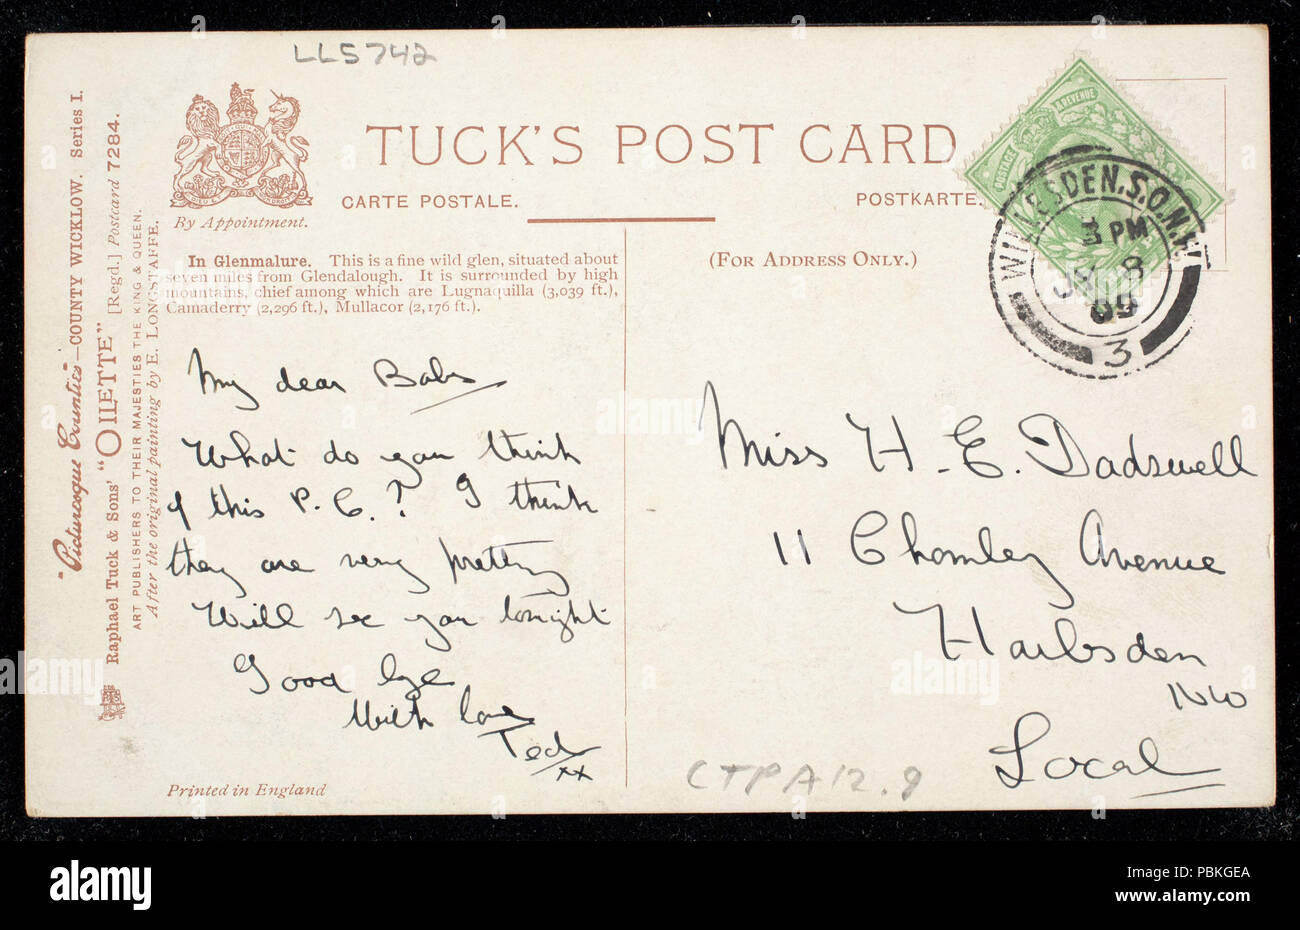 LL5742
TUCK'S POST CARD
CARTE POSTALE.
POSTKARTE.
By Appointment.
(FOR ADDRESS ONLY.)
In Glenmalure. This is a fine wild glen, situated about
seven miles from Glendalough. It is surrounded by high
mountains, chief among which are Lugnaquilla (3,039 ft.),
Camaderry (2,296 ft.), Mullacor (2,176 ft.).
"Picturesque Counties"—COUNTY WICKLOW. Series I.
Raphael Tuck & Sons' "OILETTE" [Regd.] Postcard 7284.
ART PUBLISHERS TO THEIR MAJESTIES THE KING & QUEEN.
After the original painting by E. LONGSTAFFE.
POSTAGE & REVENUE
WILLESDEN.S.O.N.W
3 PM
8
09
3
My dear Babs
What do you think
of this P.C.? I think
they are very pretty
Will see you tonight
Good bye
With love
Ted
xx
Miss H. E. Dadswell
11 Chomley Avenue
Harlsden
NW
Local
CTPA12.9
Printed in England
alamy
alamy
Image ID: PBKGEA
www.alamy.com